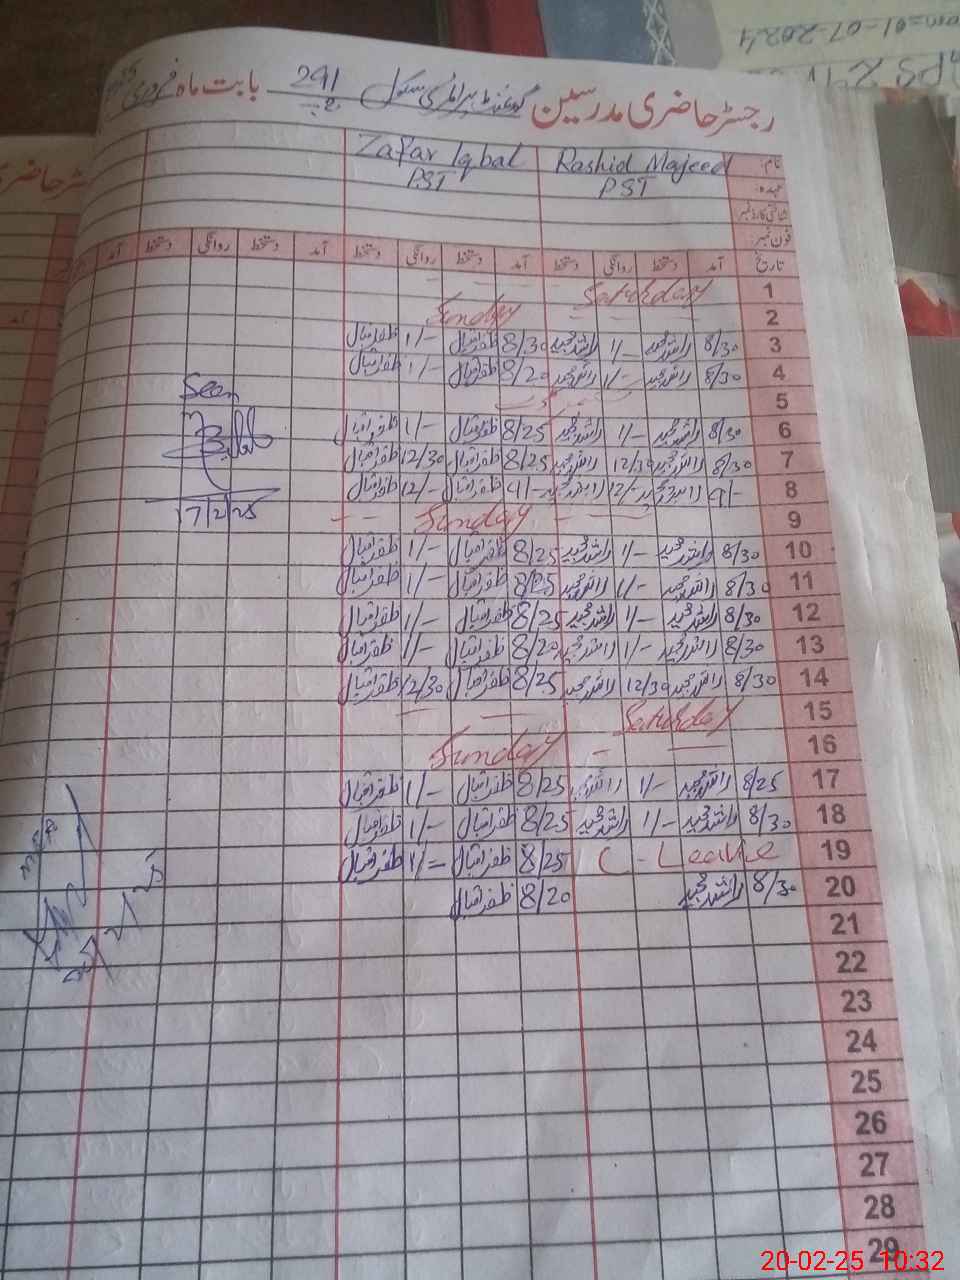 01-07-2024
رجسٹر حاضری مدرسین گورنمنٹ پرائمری سکول 291 بابت ماہ فروری
نام: Rashid Majeed Zafar Iqbal
عہدہ: PST PST
شناختی کارڈ نمبر
فون نمبر
تاریخ آمد دستخط روانگی دستخط آمد دستخط روانگی دستخط آمد دستخط روانگی دستخط آمد
1 Saturday
2 Sunday
3 8/30 راشد مجید 1/- راشد مجید 8/30 ظفر اقبال 1/- ظفر اقبال
4 8/30 راشد مجید 1/- راشد مجید 8/20 ظفر اقبال 1/- ظفر اقبال
5
6 8/30 راشد مجید 1/- راشد مجید 8/25 ظفر اقبال 1/- ظفر اقبال
7 8/30 راشد مجید 12/30 راشد مجید 8/25 ظفر اقبال 12/30 ظفر اقبال
8 9/- راشد مجید 12/- راشد مجید 9/- ظفر اقبال 12/- ظفر اقبال
9 Sunday
10 8/30 راشد مجید 1/- راشد مجید 8/25 ظفر اقبال 1/- ظفر اقبال
11 8/30 راشد مجید 1/- راشد مجید 8/25 ظفر اقبال 1/- ظفر اقبال
12 8/30 راشد مجید 1/- راشد مجید 8/25 ظفر اقبال 1/- ظفر اقبال
13 8/30 راشد مجید 1/- راشد مجید 8/20 ظفر اقبال 1/- ظفر اقبال
14 8/30 راشد مجید 12/30 راشد مجید 8/25 ظفر اقبال 12/30 ظفر اقبال
15 Saturday
16 Sunday
17 8/25 راشد مجید 1/- راشد مجید 8/25 ظفر اقبال 1/- ظفر اقبال
18 8/30 راشد مجید 1/- راشد مجید 8/25 ظفر اقبال 1/- ظفر اقبال
19 C-Leave 8/25 ظفر اقبال 1/- ظفر اقبال
20 8/30 راشد مجید 8/20 ظفر اقبال
21
22
23
24
25
26
27
28
29
Seen
17/2/25
20-02-25 10:32